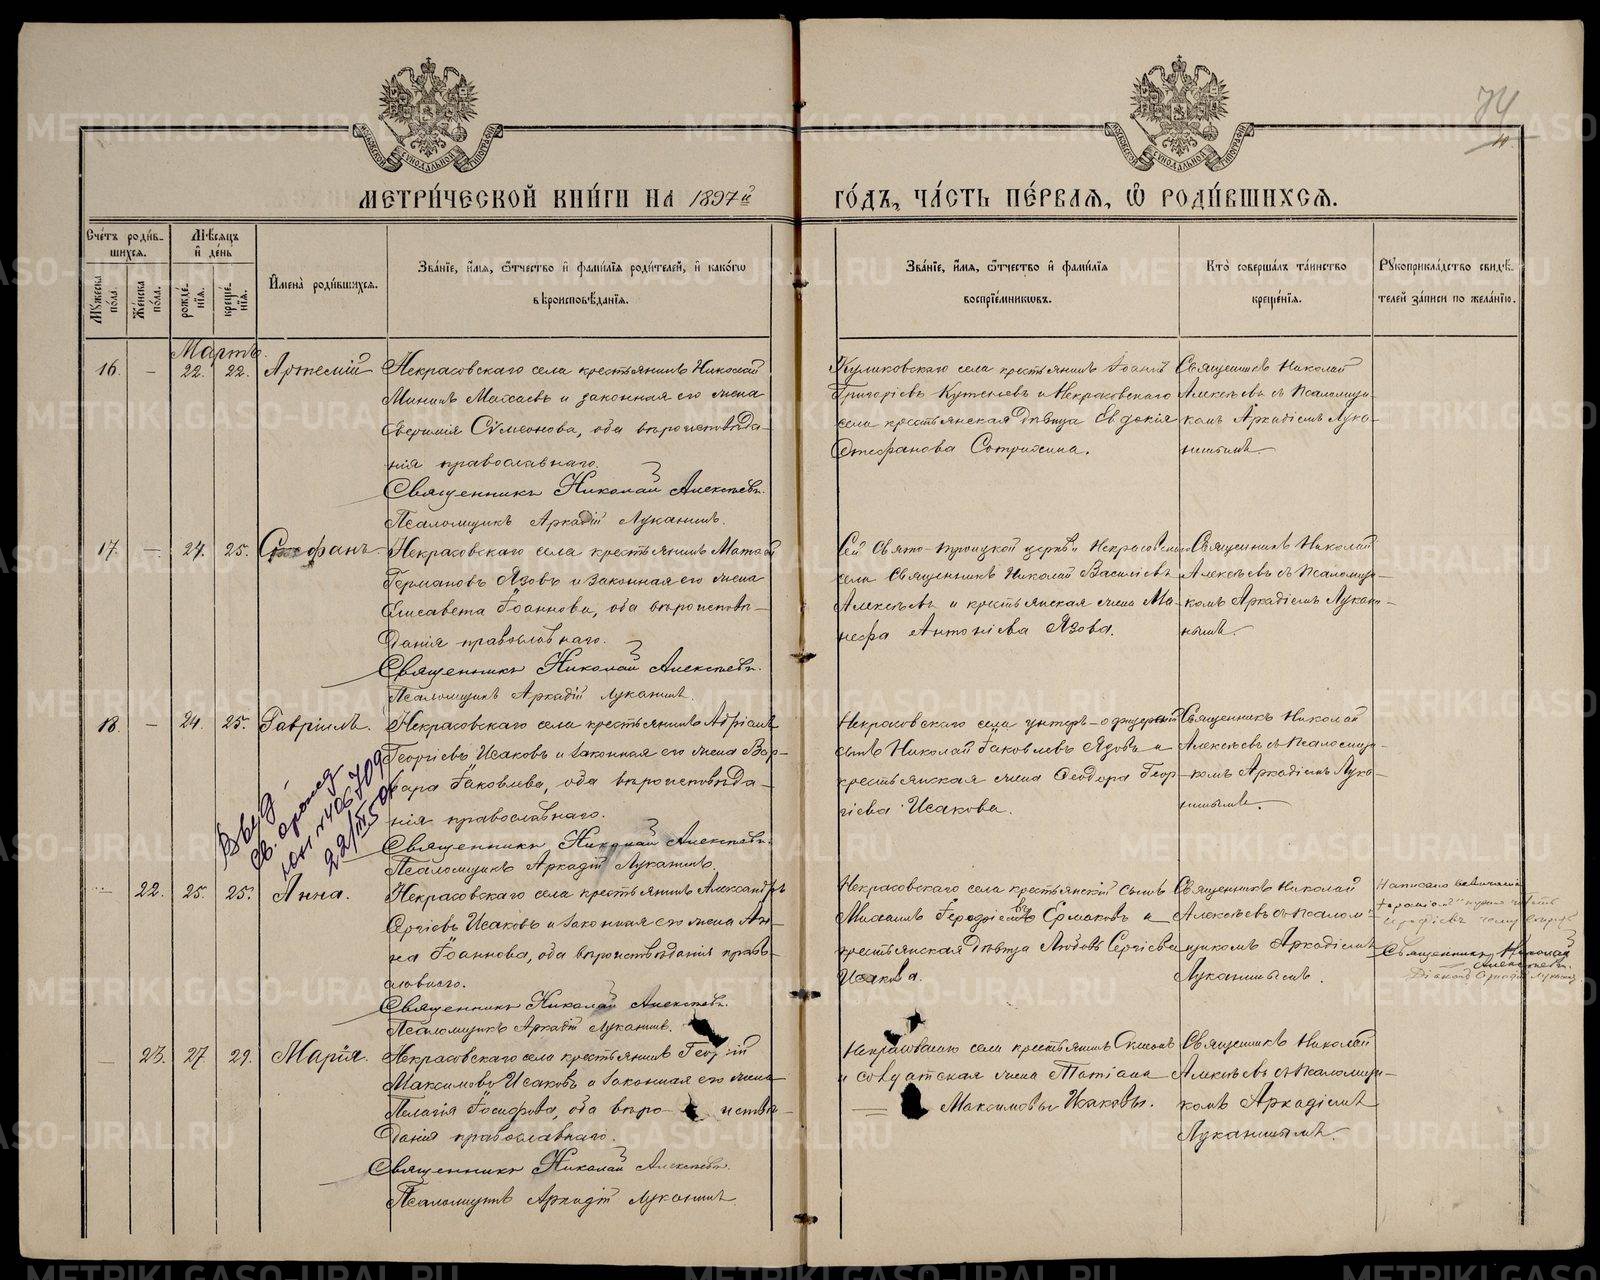 74
МЕТРИ́ЧЕСКОЙ КНИ́ГИ НА 1897й ГО́ДЪ, ЧА́СТЬ ПЕ́РВАЯ, Ѡ҆ РОДИ́ВШИХСЯ.
Сче́тъ роди́вшихся.
Му́жеска по́ла.
Же́нска по́ла.
Мѣ́сяцъ и҆ де́нь
рожде́нїя.
креще́нїя.
И҆мена̀ роди́вшихся.
Зва́нїе, и҆́мя, ѻ҆́тчество и҆ фами́лїя роди́телей, и҆ како́гѡ
вѣроисповѣ́данїя.
Зва́нїе, и҆́мя, ѻ҆́тчество и҆ фами́лїя
воспрїе́мникѡвъ.
Кто̀ соверша́лъ та́инство
креще́нїя.
Рꙋкоприкла́дство свидѣ́телей за́писи по жела́нїю.
Мартъ.
16. - 22. 22. Артемій
Некрасовскаго села крестьянинъ Николай
Мининъ и законная его жена
Сѵмеонова, оба вѣроисповѣда-
нія православнаго.
Священникъ Николай Алексѣевъ.
Псаломщикъ Аркадій Луканинъ.
Куликовскаго села крестьянинъ Іоаннъ
Григоріевъ и Некрасовскаго
села крестьянская дѣвица Евдокія
Стефанова
Священникъ Николай
Алексѣевъ съ псаломщи-
комъ Аркадіемъ Лука-
нинымъ
17. - 24. 25. Стефанъ
Некрасовскаго села крестьянинъ
Германовъ Язовъ и законная его жена
Елисавета Іоаннова, оба вѣроисповѣ-
данія православнаго.
Священникъ Николай Алексѣевъ.
Псаломщикъ Аркадій Луканинъ.
Сей Свято-Троицкой церкви Некрасовскаго
села Священникъ Николай Василіевъ
Алексѣевъ и крестьянская жена Ма-
неѳа Антоніева Язова.
Священникъ Николай
Алексѣевъ съ псаломщи-
комъ Аркадіемъ Лукан-
нымъ.
18. - 24. 25. Гавріилъ.
Некрасовскаго села крестьянинъ Адріанъ
Георгіевъ Исаковъ и законная его жена Вар-
вара Іаковлева, оба вѣроисповѣда-
нія православнаго.
Священникъ Николай Алексѣевъ.
Псаломщикъ Аркадій Луканинъ.
Некрасовскаго села унтеръ-офицерскій
сынъ Николай Іаковлевъ Язовъ и
крестьянская жена Ѳеодора Геор-
гіева Исакова.
Священникъ Николай
Алексѣевъ съ псаломщи-
комъ Аркадіемъ Лука-
нинымъ.
22/III 50
- 22. 25. 25. Анна.
Некрасовскаго села крестьянинъ Александръ
Сергіевъ Исаковъ и законная его жена Ан-
на Іоаннова, оба вѣроисповѣданія право-
славнаго.
Священникъ Николай Алексѣевъ.
Псаломщикъ Аркадій Луканинъ.
Некрасовскаго села крестьянскій сынъ
Ермаковъ и
крестьянская дѣвица Любовь Сергіева
Исакова.
Священникъ Николай
Алексѣевъ съ псалом-
щикомъ Аркадіемъ
Луканинымъ.
Священникъ Николай
Алексѣевъ.
- 23. 27. 29. Марія.
Некрасовскаго села крестьянинъ Георгій
Максимовъ Исаковъ и законная его жена
Пелагія Іосифова, оба вѣро- исповѣ-
данія православнаго.
Священникъ Николай Алексѣевъ.
Псаломщикъ Аркадій Луканинъ
Некрасовскаго села крестьянинъ Сѵмеонъ
и солдатская жена Татіана
Максимовы Исаковы.
Священникъ Николай
Алексѣевъ съ псаломщи-
комъ Аркадіемъ
Луканинымъ.
METRIKI.GASO-URAL.RU